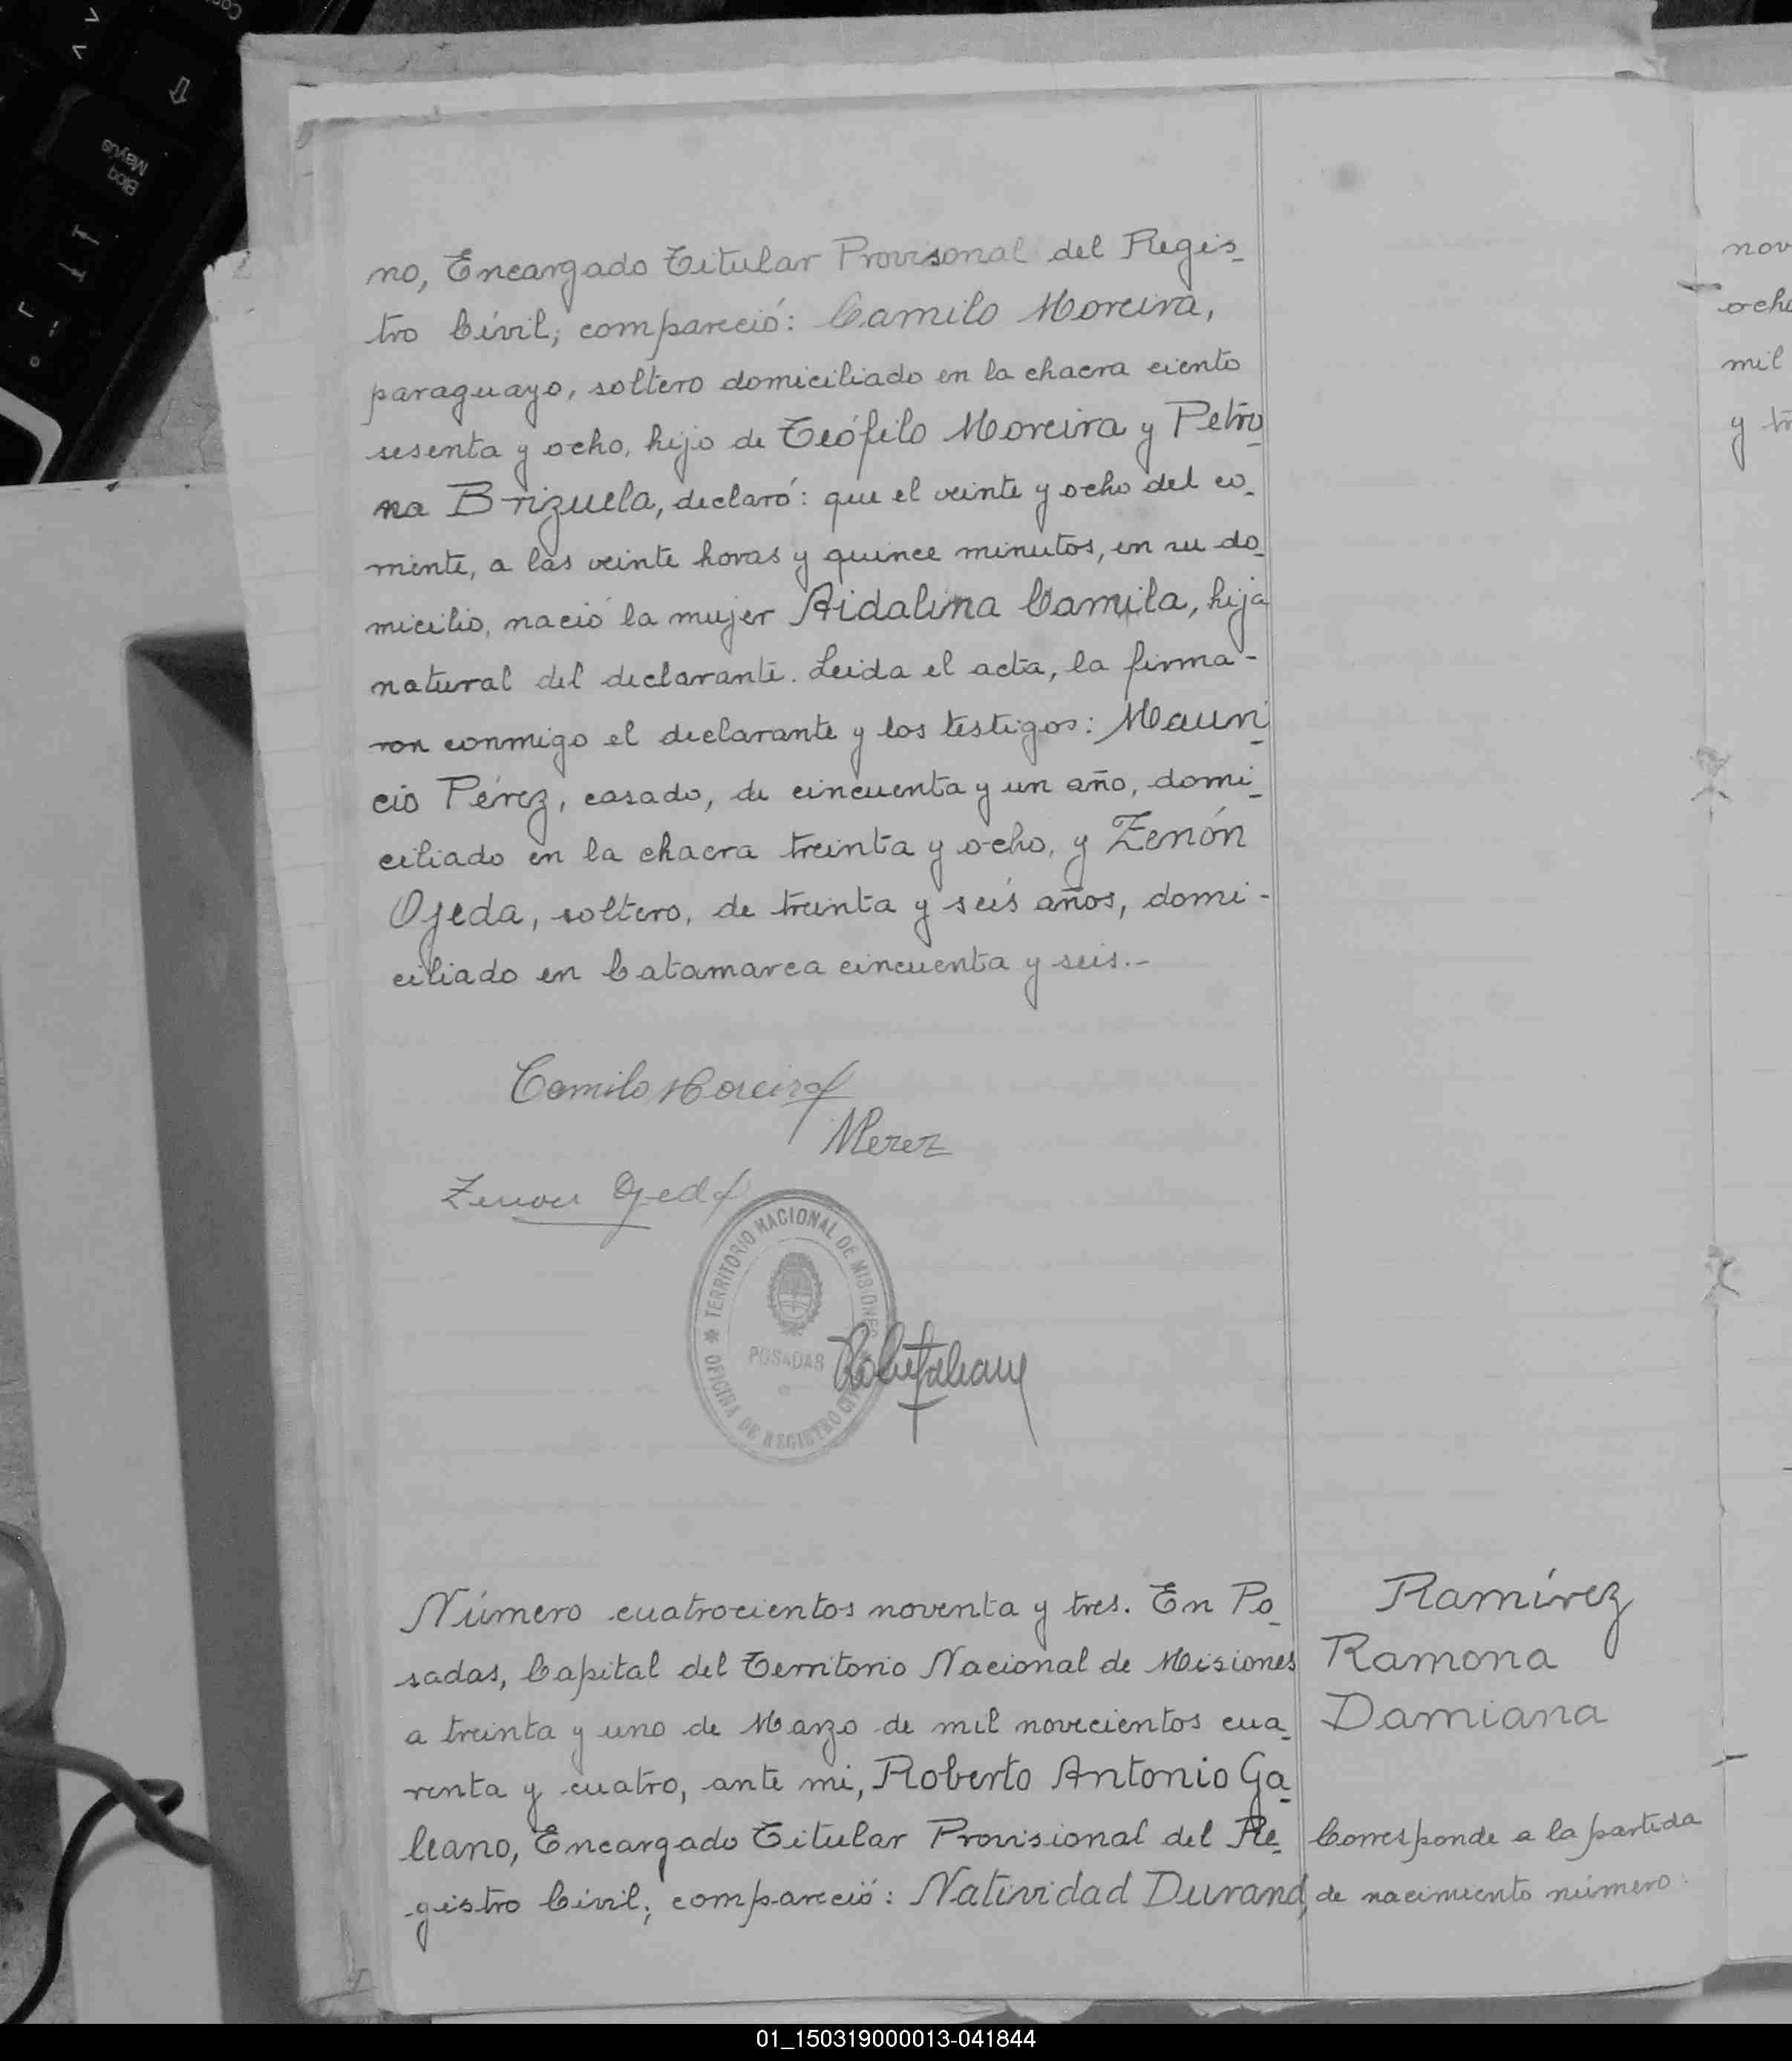 no, Encargado Titular Provisonal del Regis_
tro Civil; compareció: Camilo Moreira,
paraguayo, soltero domiciliado en la chacra ciento
sesenta y ocho, hijo de Teófilo Moreira y Petro_
na Brizuela, declaró: que el veinte y ocho del co_
rriente, a las veinte horas y quince minutos, en su do_
micilio, nació la mujer Aidalina Camila, hija
natural del declarante. Leida el acta, la firma-
ron conmigo el declarante y los testigos: Mauri_
cio Pérez, casado, de cincuenta y un año, domi_
ciliado en la chacra treinta y ocho, y Zenón
Ojeda, soltero, de treinta y seis años, domi-
ciliado en Catamarca cincuenta y seis.-
Camilo Moreira
MPerez
Zenon Ojeda
* TERRITORIO NACIONAL DE MISIONES *
POSADAS
OFICINA DE REGISTRO CIVIL
Número cuatrocientos noventa y tres. En Po_
sadas, Capital del Territorio Nacional de Misiones
a treinta y uno de Marzo de mil novecientos cua_
renta y cuatro, ante mi, Roberto Antonio Ga_
leano, Encargado Titular Provisional del Re_
gistro Civil; compareció: Natividad Durand,
Ramírez
Ramona
Damiana
Corresponde a la partida
de nacimiento número:
nov
ocho
mil
y tr
Bloq
Mayús
01_150319000013-041844